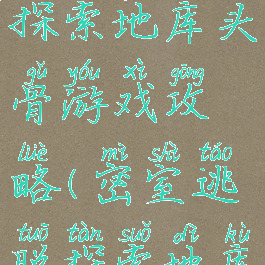 探索地库头
gǔ yóu xì gōng
骨游戏攻
lüè mì shì táo
略(密室逃
tuō tàn suǒ dì kù
脱探索地库